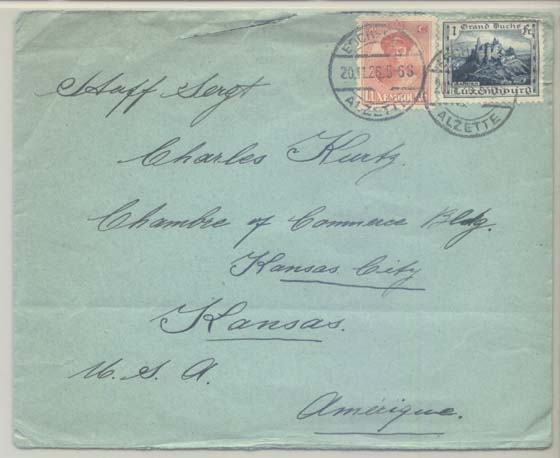 ESCH
20.11.26.5-6S
ALZETTE
LUXEMBOURG
1 Grand Duché Fr.
Luxembourg
ALZETTE
Staff Sergt
Charles Kurtz.
Chambre of Commerce Bldg.
Kansas City
Kansas.
U. S. A.
Amérique.